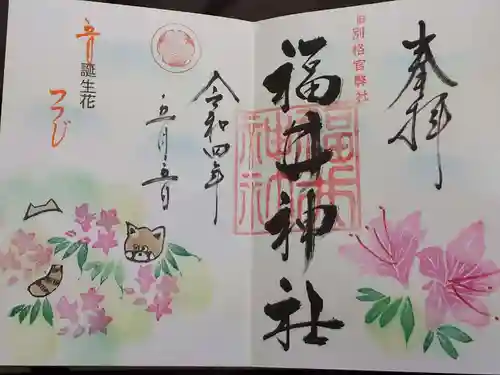 奉拝
旧別格官幣社
福井神社
福井神社
令和四年
五月五日
五月
誕生花
つつじ